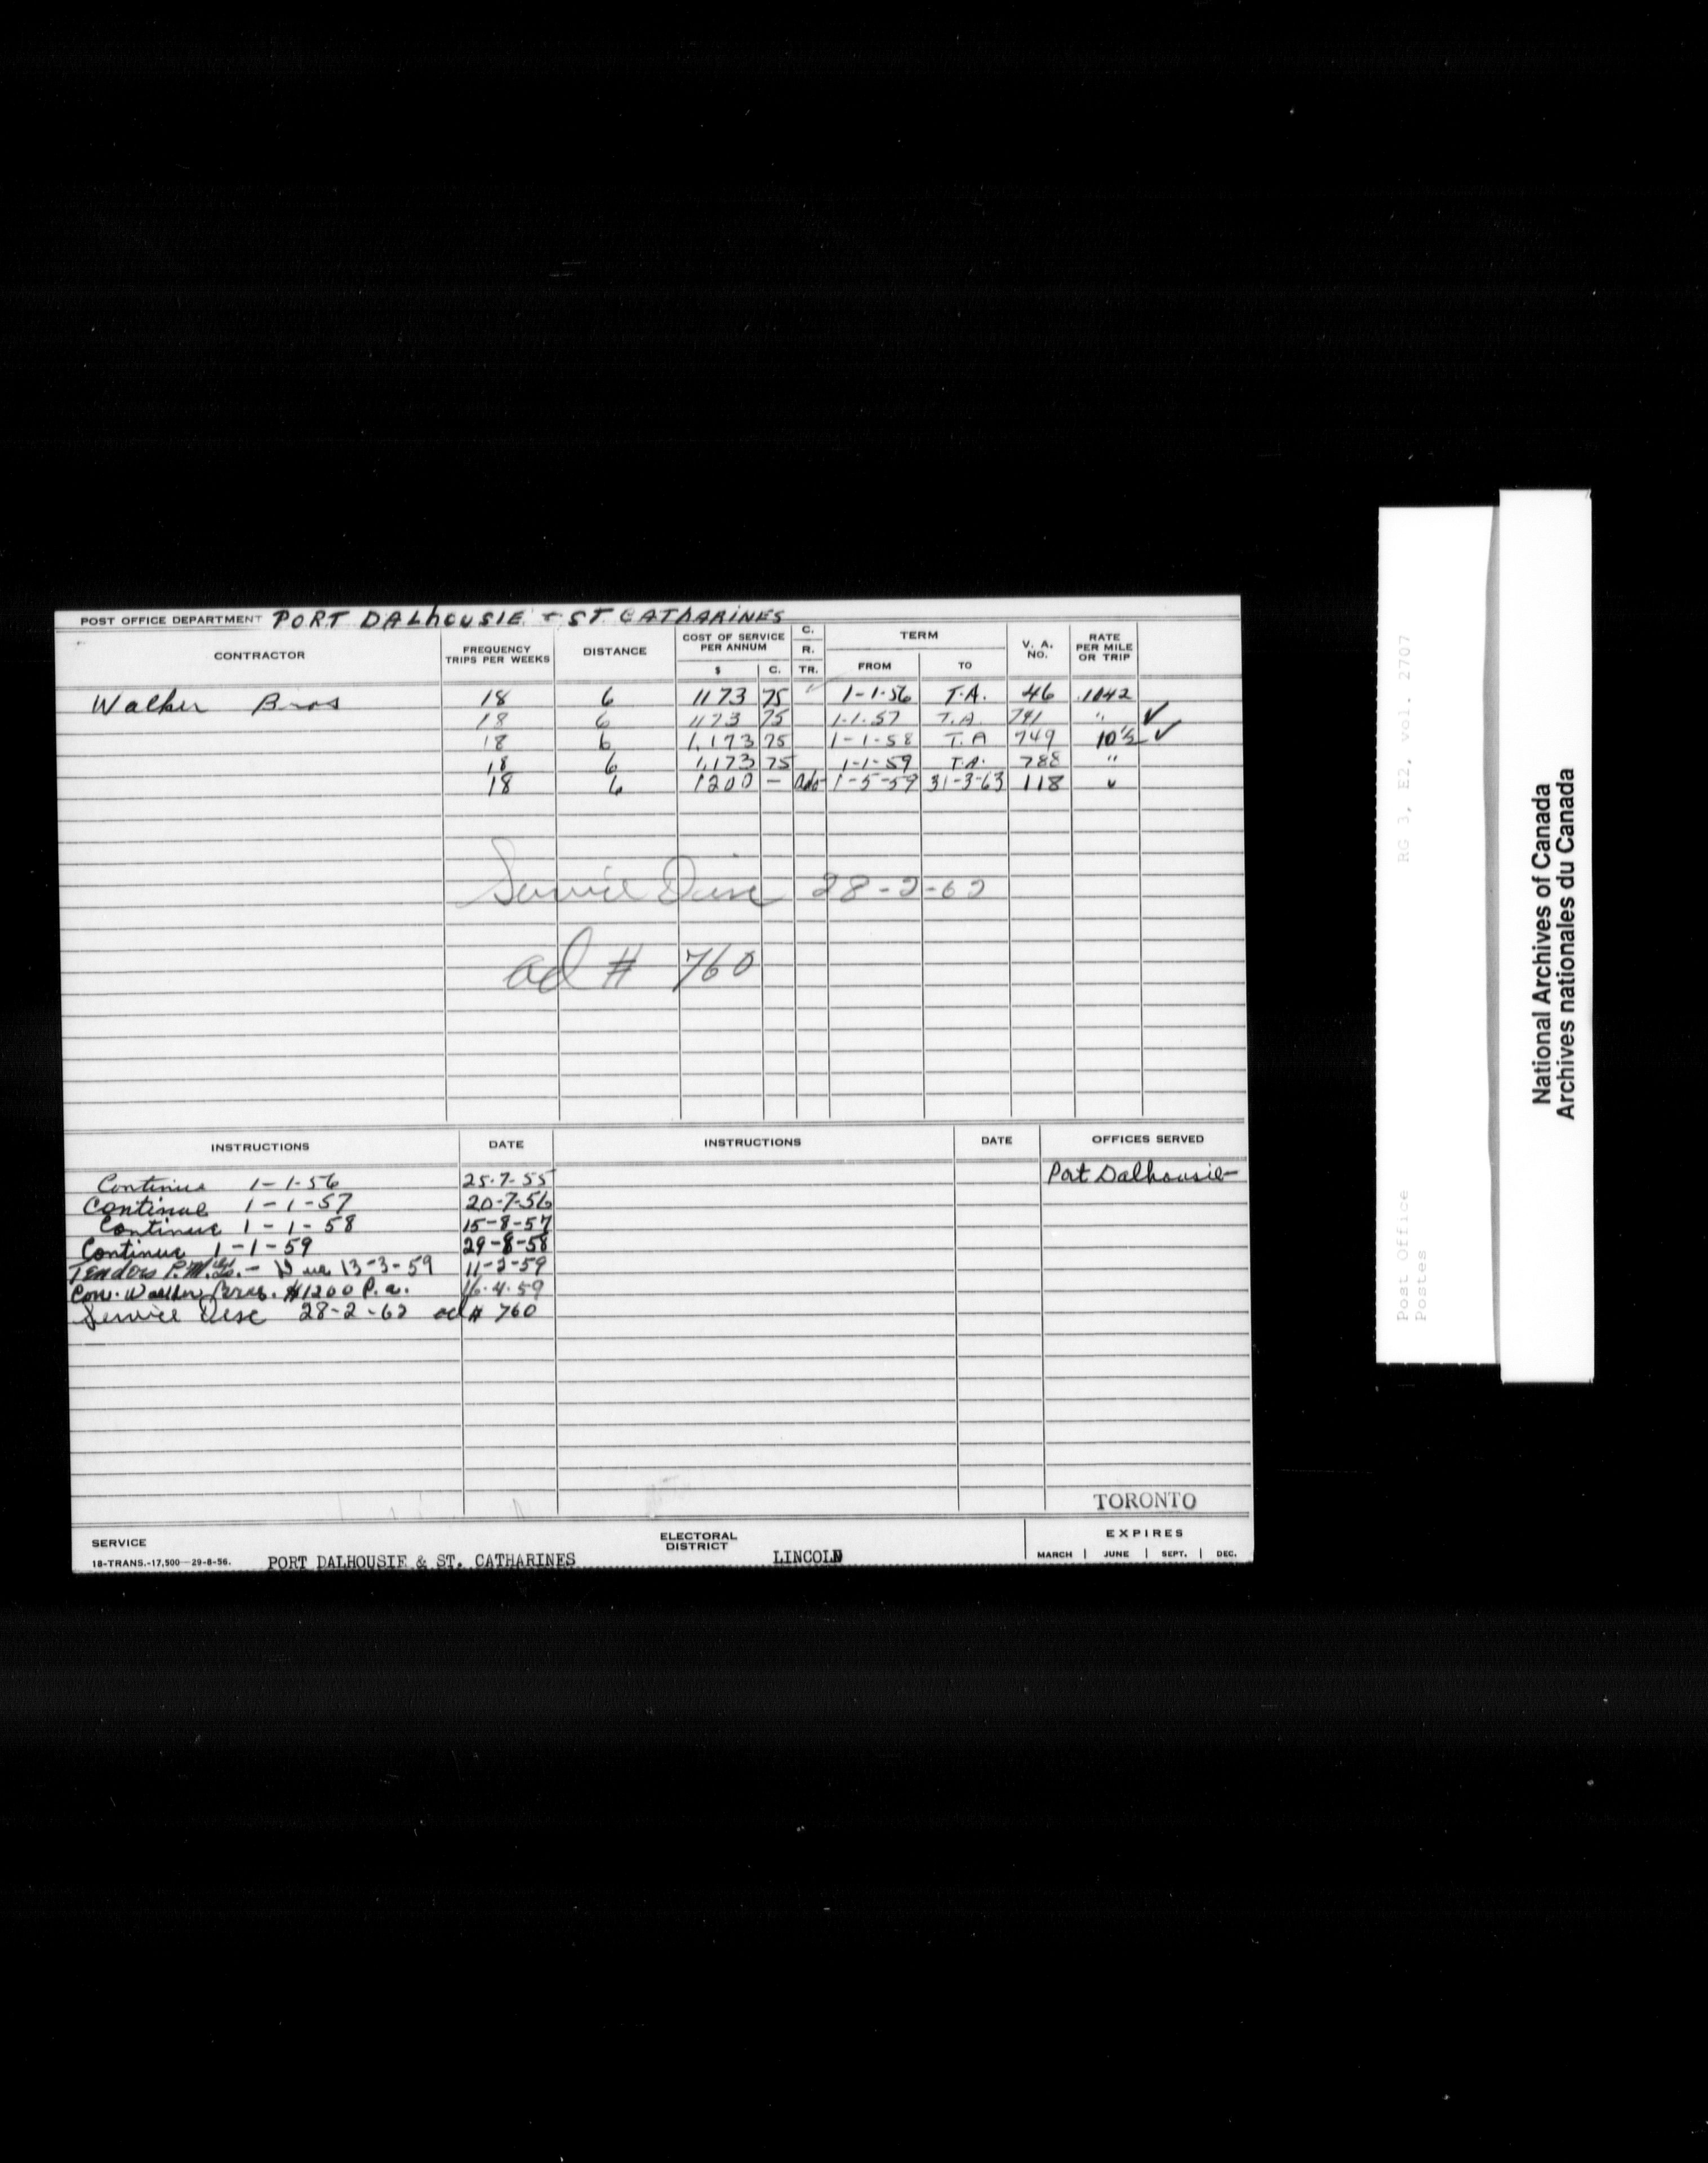 POST OFFICE DEPARTMENT PORT DALhOUSIE - ST CATHARINES
CONTRACTOR FREQUENCY TRIPS PER WEEKS DISTANCE COST OF SERVICE PER ANNUM $ C. C. R. TR. TERM FROM TO V. A. NO. RATE PER MILE OR TRIP
Walker Bros 18 6 1173 75 ✓ 1-1-56 T.A. 46 .1042
18 6 1173 75 1-1-57 T.A. 741 " ✓
18 6 1,173 75 1-1-58 T.A 749 10½ ✓
18 6 1,173 75 1-1-59 T.A. 788 "
18 6 1200 — 1-5-59 31-3-63 118 "
Service Disc 28-2-62
ad # 760
INSTRUCTIONS DATE INSTRUCTIONS DATE OFFICES SERVED
Continue 1-1-56 25-7-55 Port Dalhousie
Continue 1-1-57 20-7-56
Continue 1-1-58 15-8-57
Continue 1-1-59 29-8-58
Tenders P.M. - Due 13-3-59 11-2-59
Con. Walker Bros. $1200 P.a. 16-4-59
Service Disc 28-2-62 ad # 760
TORONTO
SERVICE PORT DALHOUSIE & ST. CATHARINES ELECTORAL DISTRICT LINCOLN EXPIRES
18-TRANS.-17,500—29-8-56. MARCH | JUNE | SEPT. | DEC.
RG 3, E2, vol. 2707
Post Office
Postes
National Archives of Canada
Archives nationales du Canada